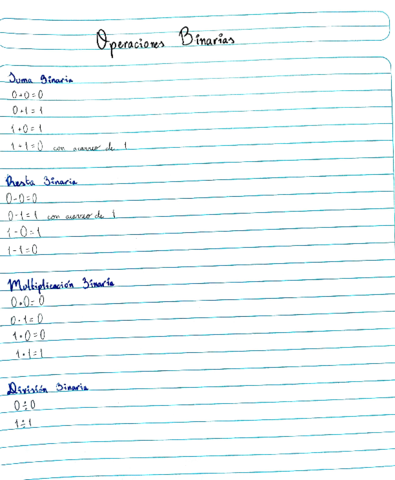 Operaciones Binarias
Suma Binaria
0+0=0
0+1=1
1+0=1
1+1=0 con acarreo de 1
Resta Binaria
0-0=0
0-1=1 con acarreo de 1
1-0=1
1-1=0
Multiplicación Binaria
0•0=0
0•1=0
1•0=0
1•1=1
División Binaria
0÷0
1÷1